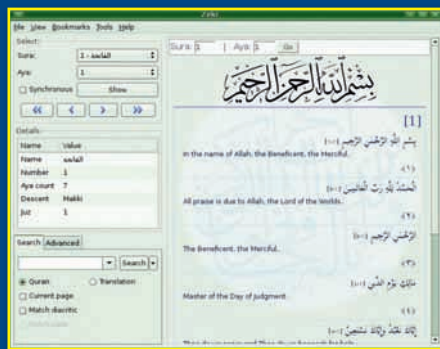 Zekr
File View Bookmarks Tools Help
Select:
Sura: 1 - الفاتحة
Aya: 1
Synchronous Show
Details:
Name Value
Name الفاتحة
Number 1
Aya count 7
Descent Makki
Juz 1
Search Advanced
Search
Quran Translation
Current page
Match diacritic
Sura: 1 | Aya: 1 Go
بِسْمِ اللَّهِ الرَّحْمَنِ الرَّحِيمِ
[1]
بِسْمِ اللَّهِ الرَّحْمَنِ الرَّحِيمِ (١-١)
In the name of Allah, the Beneficent, the Merciful.
(١)
الْحَمْدُ لِلَّهِ رَبِّ الْعَالَمِينَ
All praise is due to Allah, the Lord of the Worlds.
(٢)
الرَّحْمَنِ الرَّحِيمِ
The Beneficent, the Merciful.
(٣)
مَالِكِ يَوْمِ الدِّينِ
Master of the Day of Judgment.
(٤)
إِيَّاكَ نَعْبُدُ وَإِيَّاكَ نَسْتَعِينُ